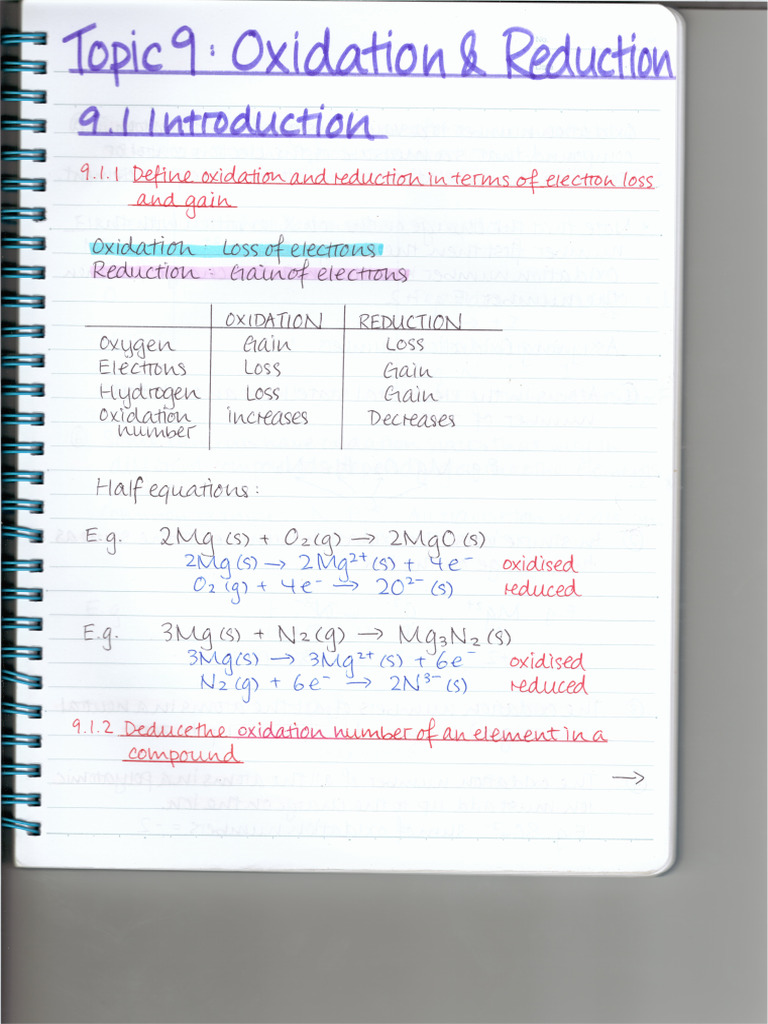 Topic 9: Oxidation & Reduction
9.1 Introduction
9.1.1 Define oxidation and reduction in terms of electron loss
and gain
Oxidation: Loss of electrons
Reduction: Gain of electrons
OXIDATION REDUCTION
Oxygen Gain Loss
Electrons Loss Gain
Hydrogen Loss Gain
Oxidation increases Decreases
number
Half equations:
E.g. 2Mg (s) + O₂(g) → 2MgO (s)
2Mg(s) → 2Mg²⁺(s) + 4e⁻ oxidised
O₂(g) + 4e⁻ → 2O²⁻ (s) reduced
E.g. 3Mg(s) + N₂(g) → Mg₃N₂(s)
3Mg(s) → 3Mg²⁺(s) + 6e⁻ oxidised
N₂(g) + 6e⁻ → 2N³⁻(s) reduced
9.1.2 Deduce the oxidation number of an element in a
compound
→